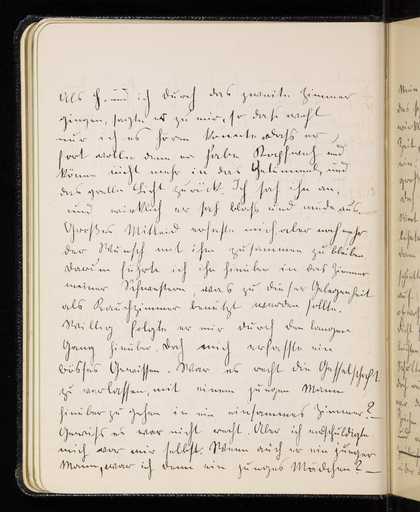 Als H. und ich durch das zweite Zimmer
gingen, sagte er zu mir, so dass wohl
nur ich es hören konnte, dass er
fort wolle denn er habe Kopfweh und
könne nicht mehr in das Getümmel und
das grelle Licht zurück. Ich sah ihn an,
und wirklich er sah blass und müde aus.
Großes Mitleid erfasste mich aber noch mehr
der Wunsch mit ihm zusammen zu bleiben.
Darum führte ich ihn hinüber in das Zimmer
meiner Schwestern, was zu dieser Gelegenheit
als Rauchzimmer benützt werden sollte.
Willig folgte er mir durch den langen
Gang hinüber. Doch mich erfasste ein
böses Gewissen. War es recht die Gesellschaft
zu verlassen, mit einem jungen Mann
hinüber zu gehen in ein einsames Zimmer? –
Gewiss es war nicht recht. Aber ich entschuldigte
mich vor mir selbst. Wenn auch er ein junger
Mann, war ich denn ein junges Mädchen? –